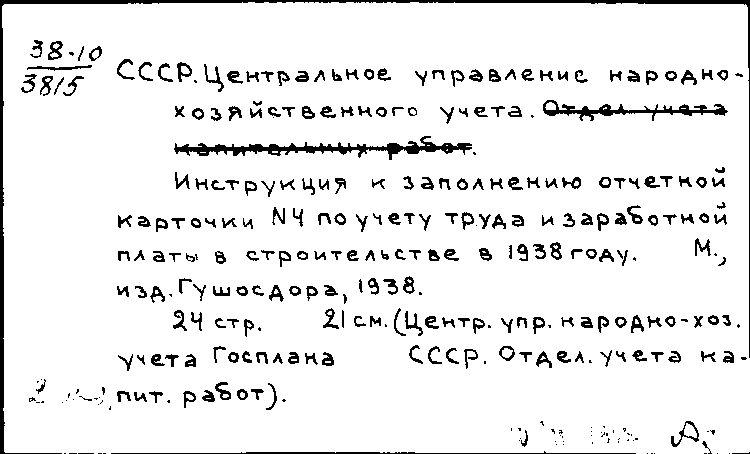 38-10
3815
СССР. Центральное управление народно-
хозяйственного учета. Отдел учета
капитальных работ.
Инструкция к заполнению отчетной
карточки N4 по учету труда и заработной
платы в строительстве в 1938 году. М.,
изд. Гушосдора, 1938.
24 стр. 21 см. (Центр. упр. народно-хоз.
учета Госплана СССР. Отдел. учета ка-
пит. работ).
2